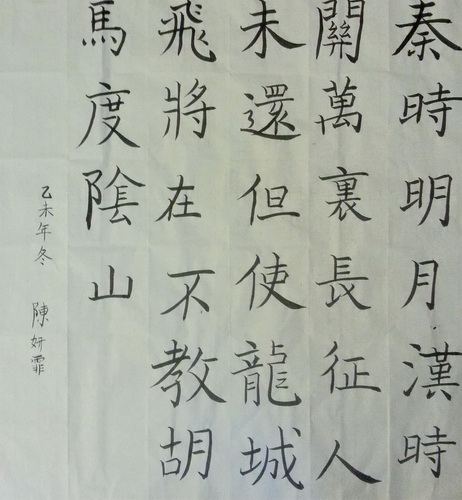 秦時明月漢時
關萬裏長征人
未還但使龍城
飛將在不教胡
馬度陰山
乙未年冬 陳妍霏